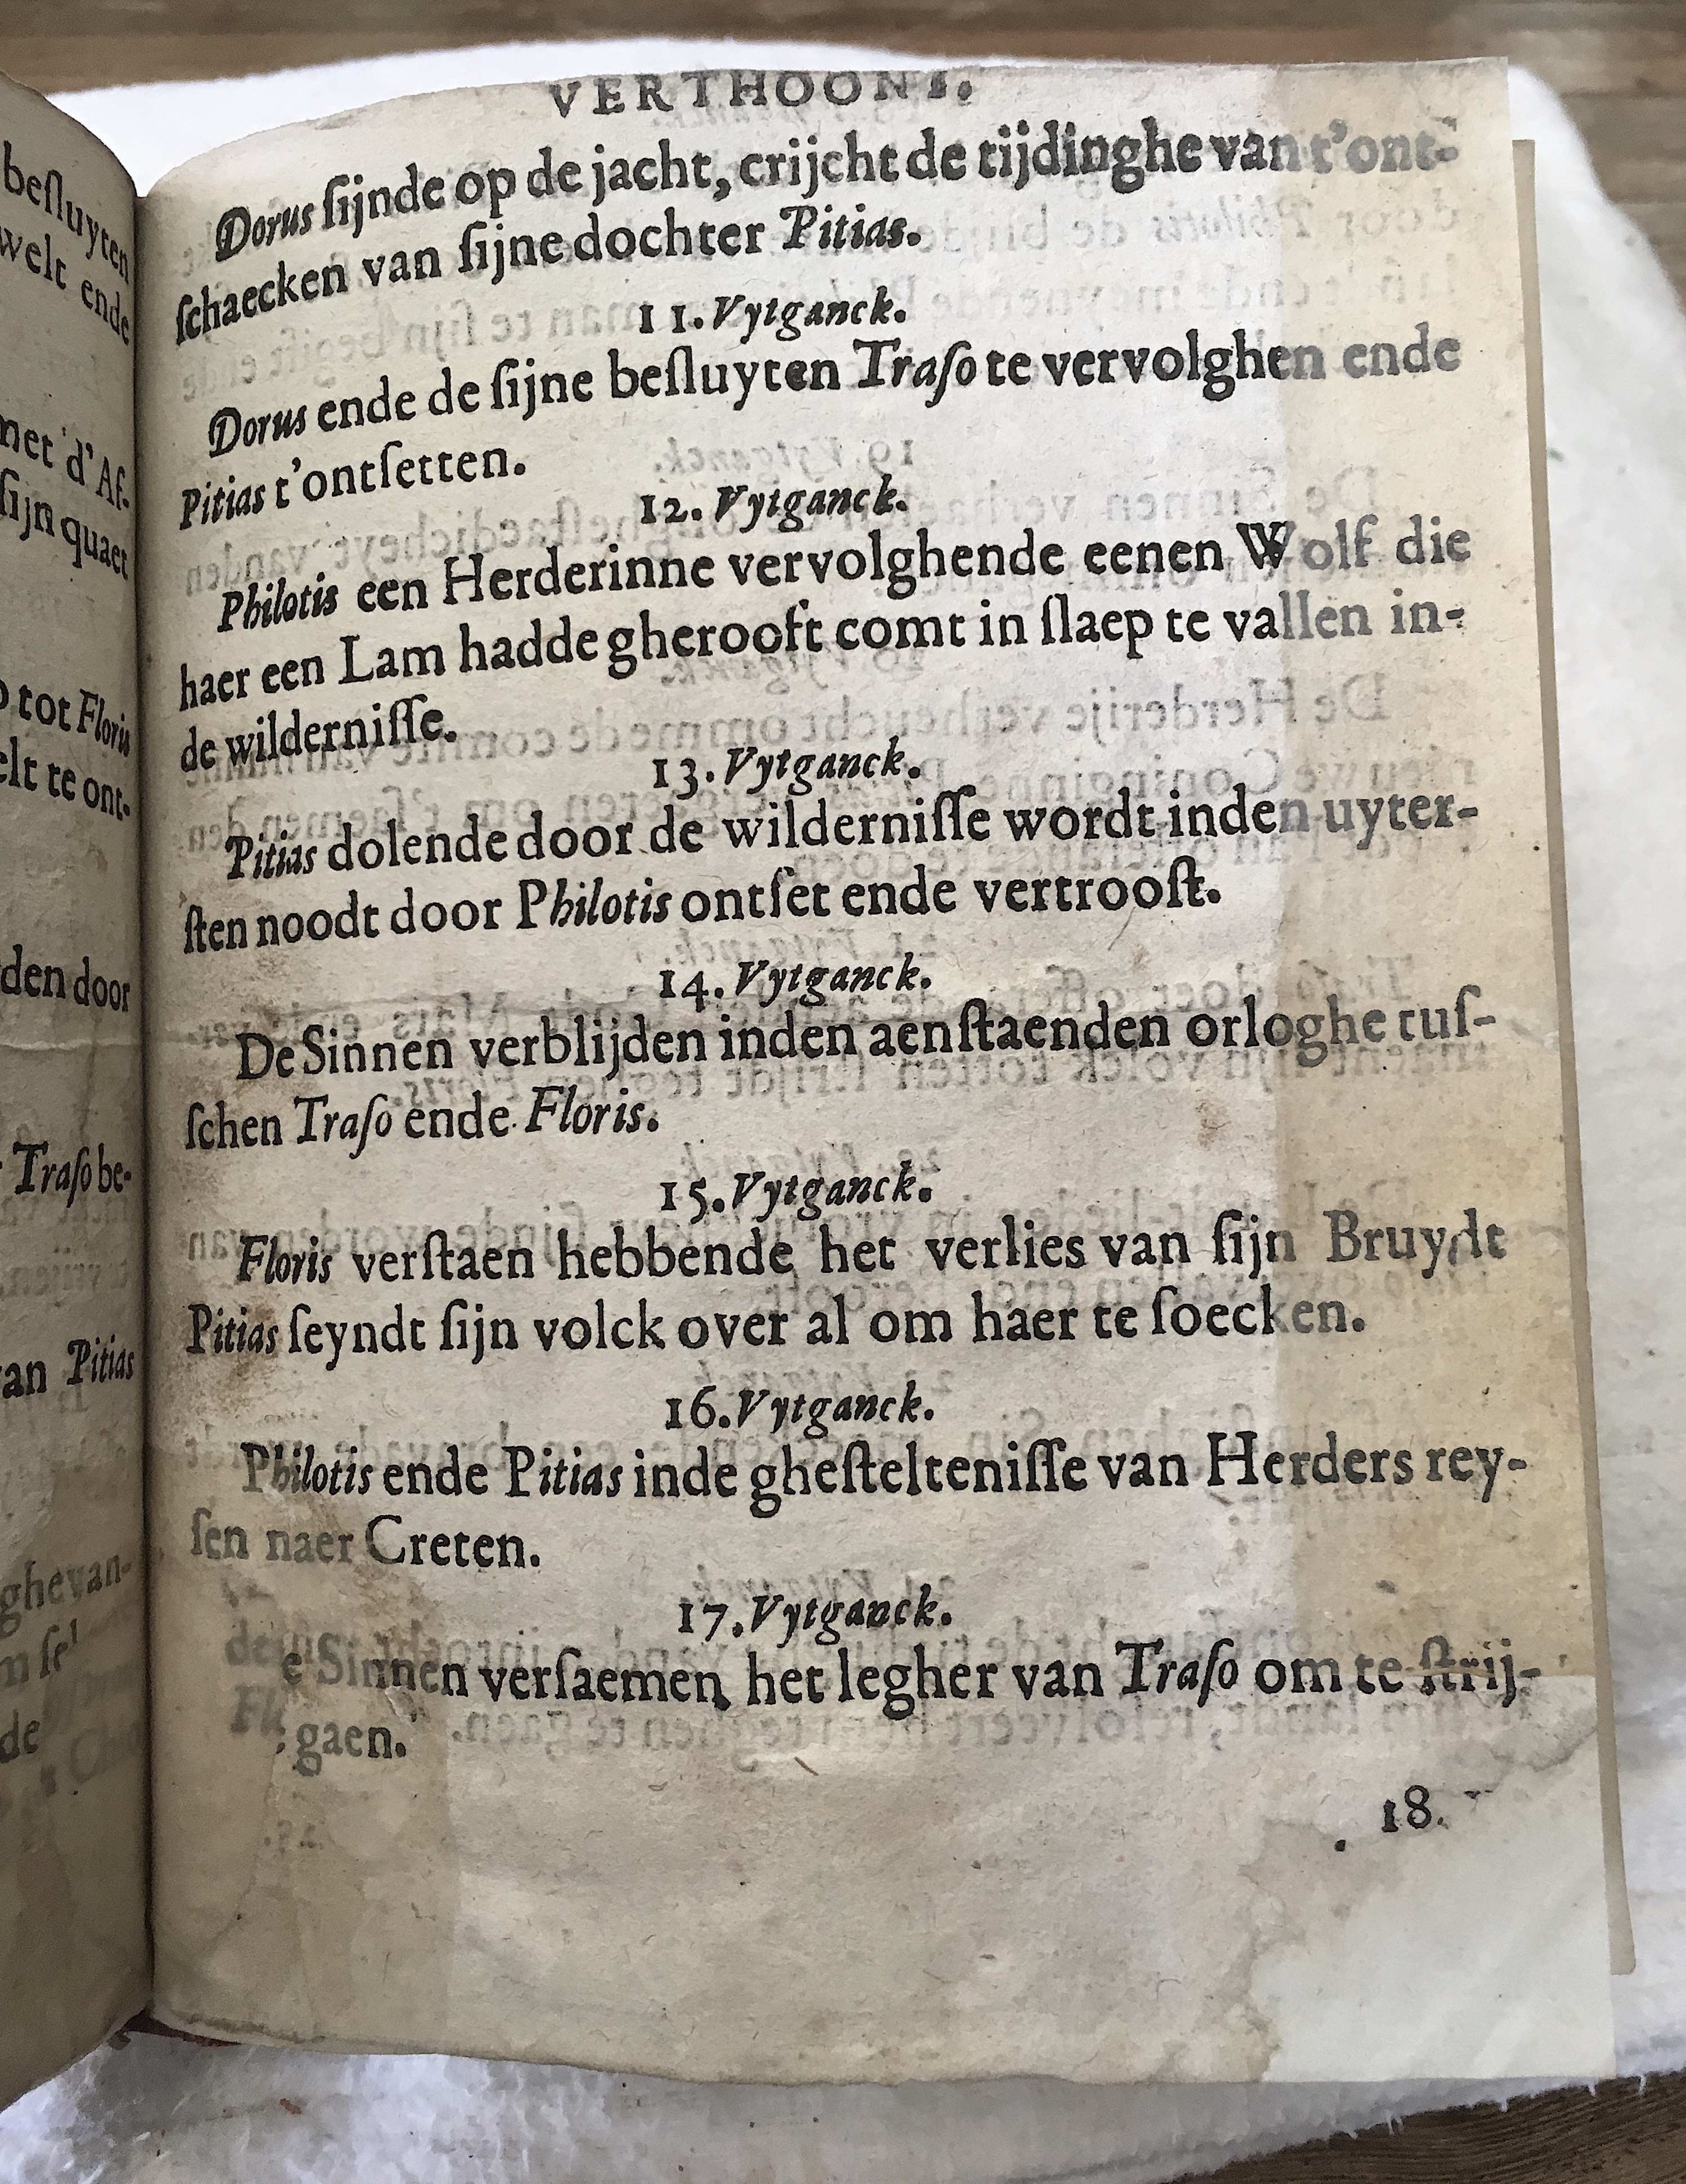 besluyten
welt ende
met d'Af-
sijn quaet
tot Floris
te ont-
den door
Traso be-
van Pitias
ghevan-
VERTHOONT.
Dorus sijnde op de jacht, crijcht de tijdinghe van t'ont-
schaecken van sijne dochter Pitias.
11. Vytganck.
Dorus ende de sijne besluyten Traso te vervolghen ende
Pitias t'ontsetten.
12. Vytganck.
Philotis een Herderinne vervolghende eenen Wolf die
haer een Lam hadde gherooft comt in slaep te vallen in-
de wildernisse.
13. Vytganck.
Pitias dolende door de wildernisse wordt inden uyter-
sten noodt door Philotis ontset ende vertroost.
14. Vytganck.
De Sinnen verblijden inden aenstaenden orloghe tus-
schen Traso ende Floris.
15. Vytganck.
Floris verstaen hebbende het verlies van sijn Bruydt
Pitias seyndt sijn volck over al om haer te soecken.
16. Vytganck.
Philotis ende Pitias inde ghesteltenisse van Herders rey-
sen naer Creten.
17. Vytganck.
e Sinnen versaemen het legher van Traso om te strij-
gaen.
18.